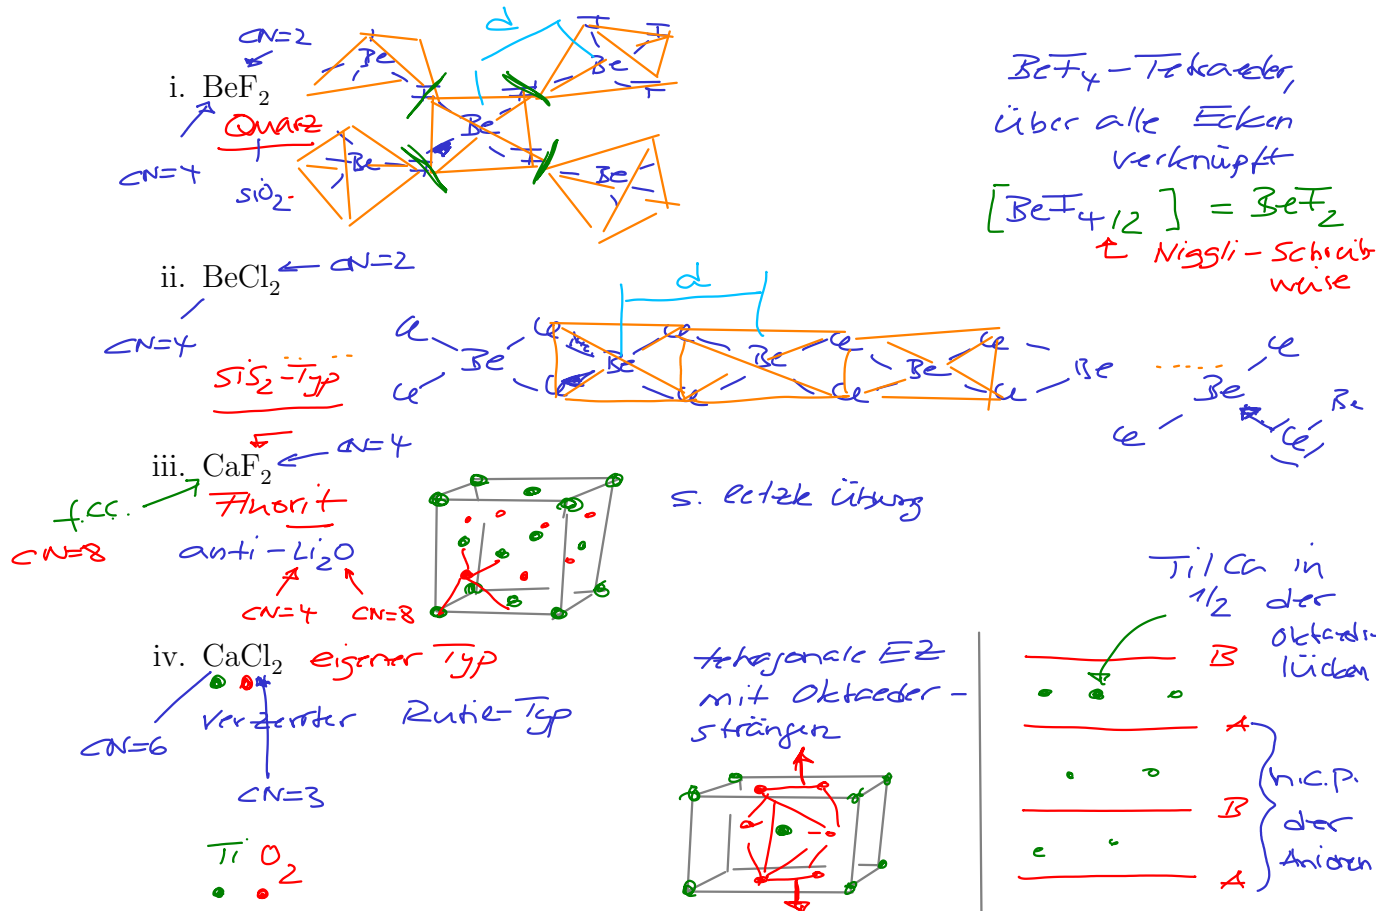 CN=2
i. BeF₂
Quarz
CN=4
SiO₂
d
Be
Be
Be
Be
Be
BeF₄-Tetraeder,
über alle Ecken
verknüpft
[BeF₄/₂] = BeF₂
Niggli-Schreib-
weise
ii. BeCl₂
CN=2
CN=4
SiS₂-Typ
d
Cl Cl Cl Cl Cl Cl
Be Be Be Be Be Be Be
Cl Cl Cl Cl Cl Cl Cl
iii. CaF₂
CN=4
f.c.c.
CN=8
Fluorit
anti-Li₂O
CN=4 CN=8
s. letzte Übung
iv. CaCl₂
eigener Typ
verzerrter Rutil-Typ
CN=6
CN=3
Ti O₂
tetragonale EZ
mit Oktaeder-
strängen
Ti/Ca in
1/2 der
Oktaeder-
lücken
B
A
B
A
h.c.p.
der
Anionen